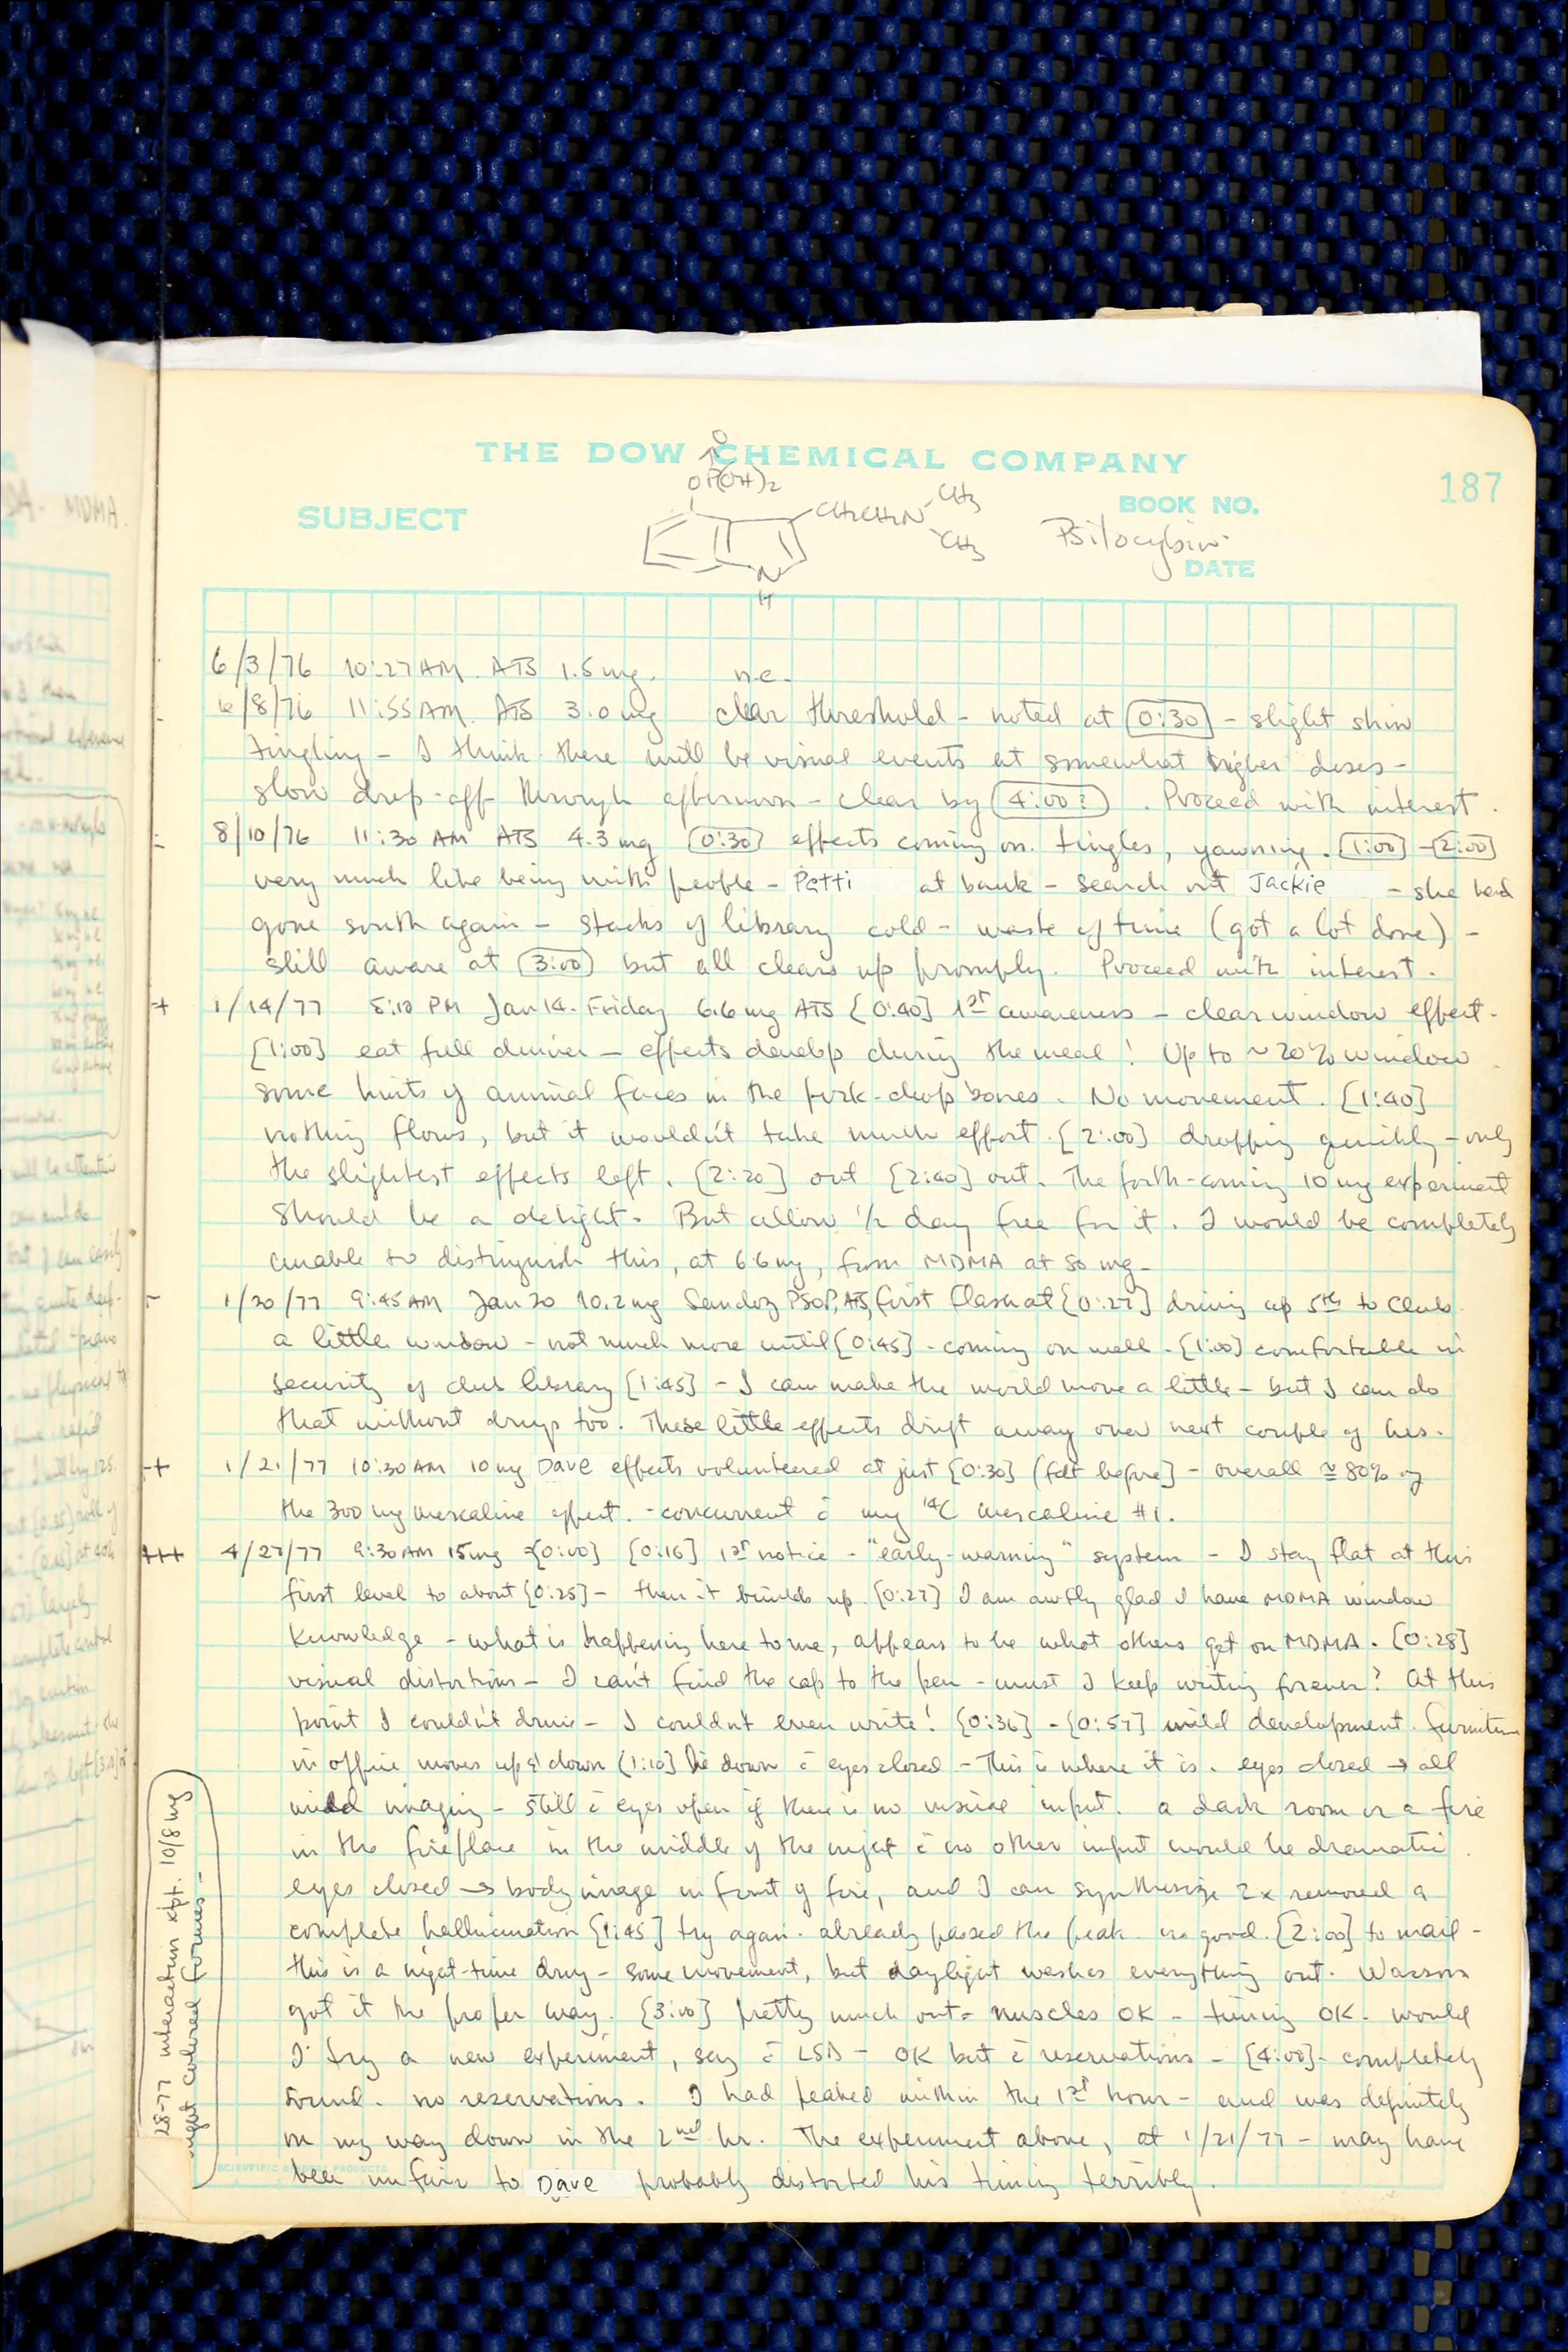 THE DOW CHEMICAL COMPANY
187
O
OP(OH)2
SUBJECT
CH2CH2N
CH3
CH3
BOOK NO.
Psilocybin
DATE
N
H
6/3/76 10:27 AM. ATS 1.5 mg. n.e.
6/8/76 11:55 AM. ATS 3.0 mg clear threshold - noted at [0:30] - slight skin
tingling - I think there will be visual events at somewhat higher doses -
slow drop-off through afternoon - clear by [4:00?]. Proceed with interest.
8/10/76 11:30 AM ATS 4.3 mg [0:30] effects coming on. tingles, yawning. [1:00]-[2:00]
very much like being with people - Patti at bank - search out Jackie - she had
gone south again - stacks of library cold - waste of time (got a lot done) -
still aware at [3:00] but all clears up promptly. Proceed with interest.
-+ 1/14/77 5:10 PM Jan 14. Friday 6.6 mg ATS [0:40] 1st awareness - clear window effect.
[1:00] eat full dinner - effects develop during the meal! Up to ~20% window
some hints of animal faces in the pork-chop bones. No movement. [1:40]
nothing flows, but it wouldn't take much effort. [2:00] dropping quickly - only
the slightest effects left. [2:20] out [2:40] out. The forth-coming 10 mg experiment
should be a delight. But allow 1/2 day free for it. I would be completely
unable to distinguish this, at 6.6 mg, from MDMA at 80 mg -
1/20/77 9:45 AM Jan 20 10.2 mg Sandoz PSOP, ATS, first flash at [0:27] driving up 5th to Club.
a little window - not much more until [0:45] - coming on well - [1:00] comfortable in
security of club library [1:45] - I can make the world move a little - but I can do
that without drugs too. These little effects drift away over next couple of hrs.
-+ 1/21/77 10:30 AM 10 mg Dave effects volunteered at just [0:30] (felt before) - overall ≅ 80% of
the 300 mg mescaline effect. - concurrent c̄ my 14C mescaline #1.
+++ 4/27/77 9:30 AM 15 mg =[0:00] [0:16] 1st notice - "early-warning" system - I stay flat at this
first level to about [0:25] - then it builds up. [0:27] I am awfly glad I have MDMA window
knowledge - what is happening here to me, appears to be what others get on MDMA. [0:28]
visual distortion - I can't find the cap to the pen - must I keep writing forever? At this
point I couldn't drive - I couldn't even write! [0:36] - [0:57] mild development. furniture
in office moves up & down (1:10] lie down c̄ eyes closed - This is where it is. eyes closed → all
imaging - still c̄ eyes open if there is no visual input. a dark room or a fire
in the fireplace in the middle of the night c̄ no other input would be dramatic.
eyes closed → body image in front of fire, and I can synthesize 2x removed a
complete hallucination [1:45] try again. already passed the peak no good. [2:00] to mail -
this is a night-time drug - some movement, but daylight washes everything out. Wasson
got it the proper way. [3:00] pretty much out - muscles OK - timing OK - would
I try a new experiment, say c̄ LSD - OK but c̄ reservations - [4:00] - completely
sound. no reservations. I had peaked within the 1st hour - and was definitely
on my way down in the 2nd hr. The experiment above, at 1/21/77 - may have
been unfair to Dave probably distorted his timing terribly.
28-77 interaction xpt. 10/8 mg
colored
SCIENTIFIC PRODUCTS
MDMA.